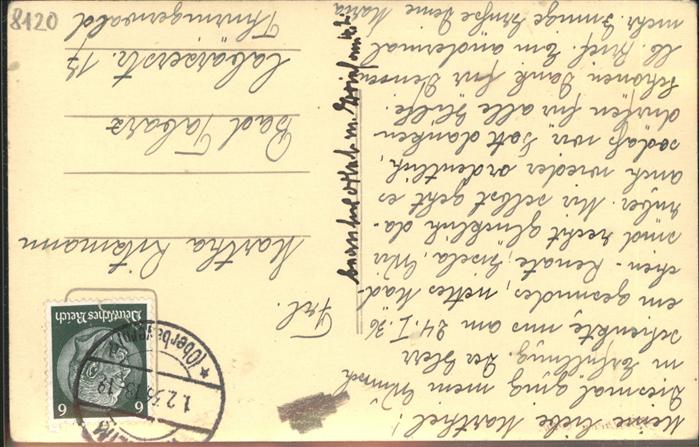 Meine liebe Marthel!
Diesmal ging mein Wunsch
in Erfüllung. Der Herr
schenkte uns am 24. I. 36
ein gesundes, nettes Mäd-
chen - Renate, Gisela. Wir
sind recht glücklich da-
rüber. Mir selbst geht es
auch wieder ordentlich,
sodaß wir Gott danken
dürfen für alle Hilfe.
Schönen Dank für Deinen
lb. Brief. Ein andermal
mehr. Innige Grüße Deine Maria
Frl.
Martha
Bad Tabarz
Cabarzerstr. 17
Thüringerwald
Deutsches Reich
6 6
(Oberbayern)
1.2.36
8120